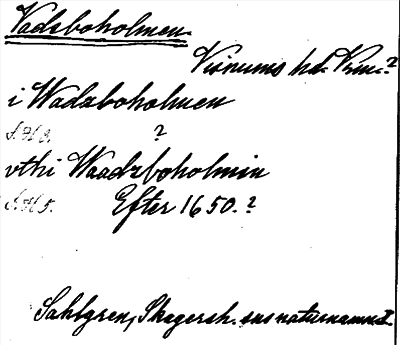 Vadsboholmen.
Visnums hd. Vrm.?
i Wadzboholmen
S. H 3. ?
vthi Waadzboholmin
S. H 5. Efter 1650.?
Sahlgren, Skagersh. sns naturnamn I.